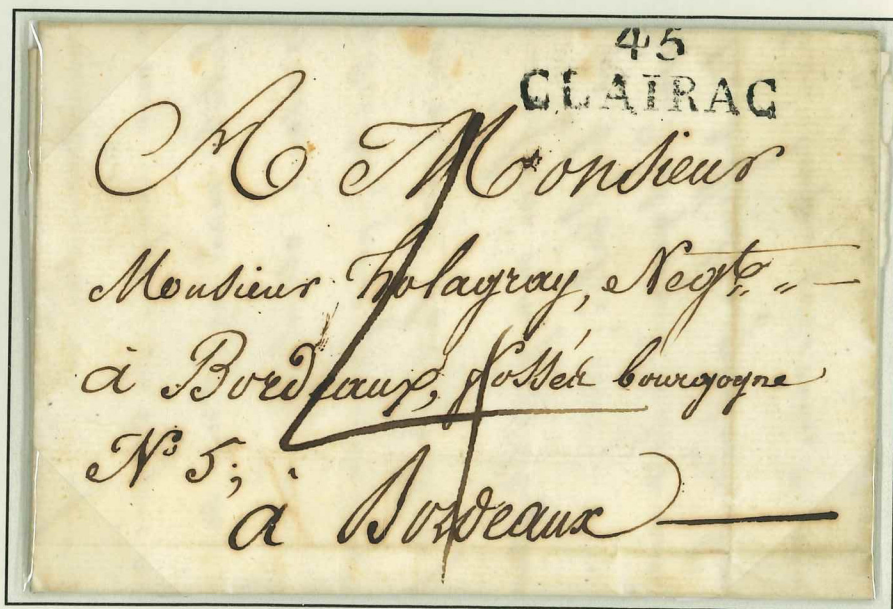 45
CLAIRAC
A Monsieur
Monsieur holagray, Negt
à Bordeaux, fossés bourgogne
N° 5;
à Bordeaux
4